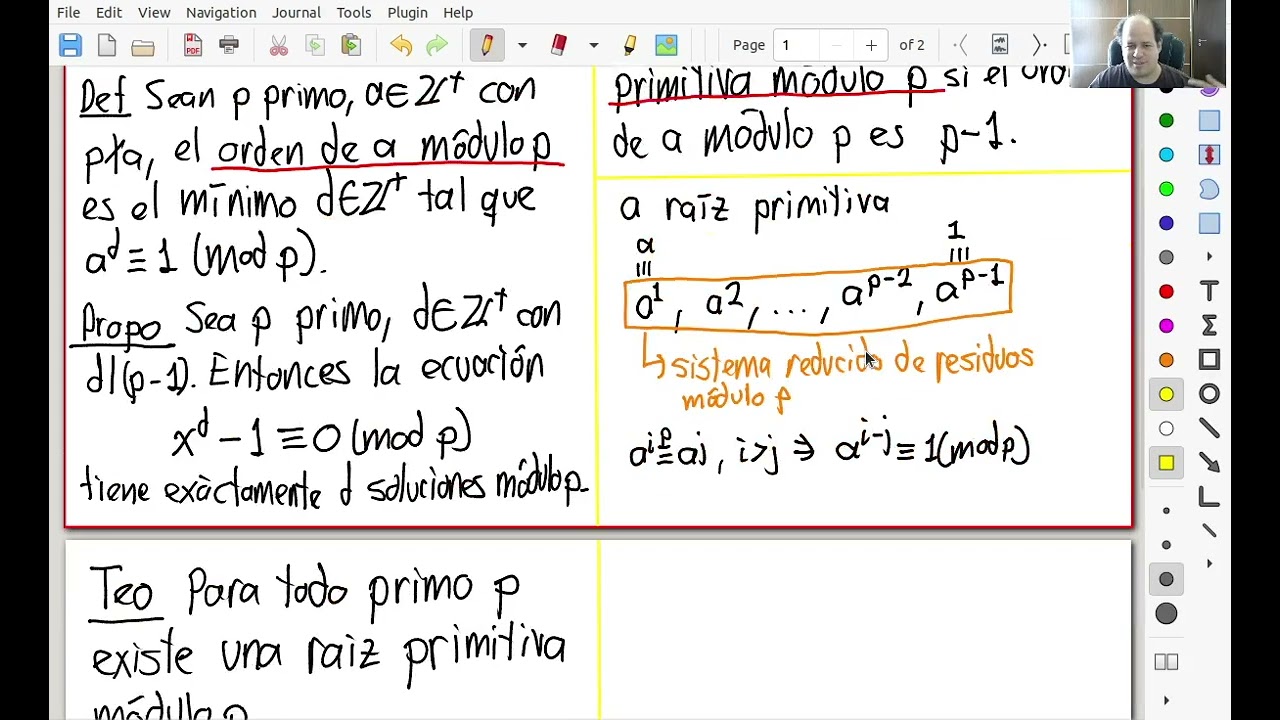 File Edit View Navigation Journal Tools Plugin Help
Page 1 of 2
Def Sean p primo, a∈ℤ⁺ con
p∤a, el orden de a módulo p
es el mínimo d∈ℤ⁺ tal que
aᵈ ≡ 1 (mod p).
Propo Sea p primo, d∈ℤ⁺ con
d|(p-1). Entonces la ecuación
xᵈ - 1 ≡ 0 (mod p)
tiene exàctamente d soluciones módulo p.
primitiva módulo p si el
de a módulo p es p-1.
a raíz primitiva
a 1
||| |||
a¹, a², ..., aᵖ⁻², aᵖ⁻¹
↳ sistema reducido de residuos
módulo p
aⁱ ≡ᵖ aʲ, i>j ⇒ aⁱ⁻ʲ ≡ 1 (mod p)
Teo Para todo primo p
existe una raiz primitiva
módulo p